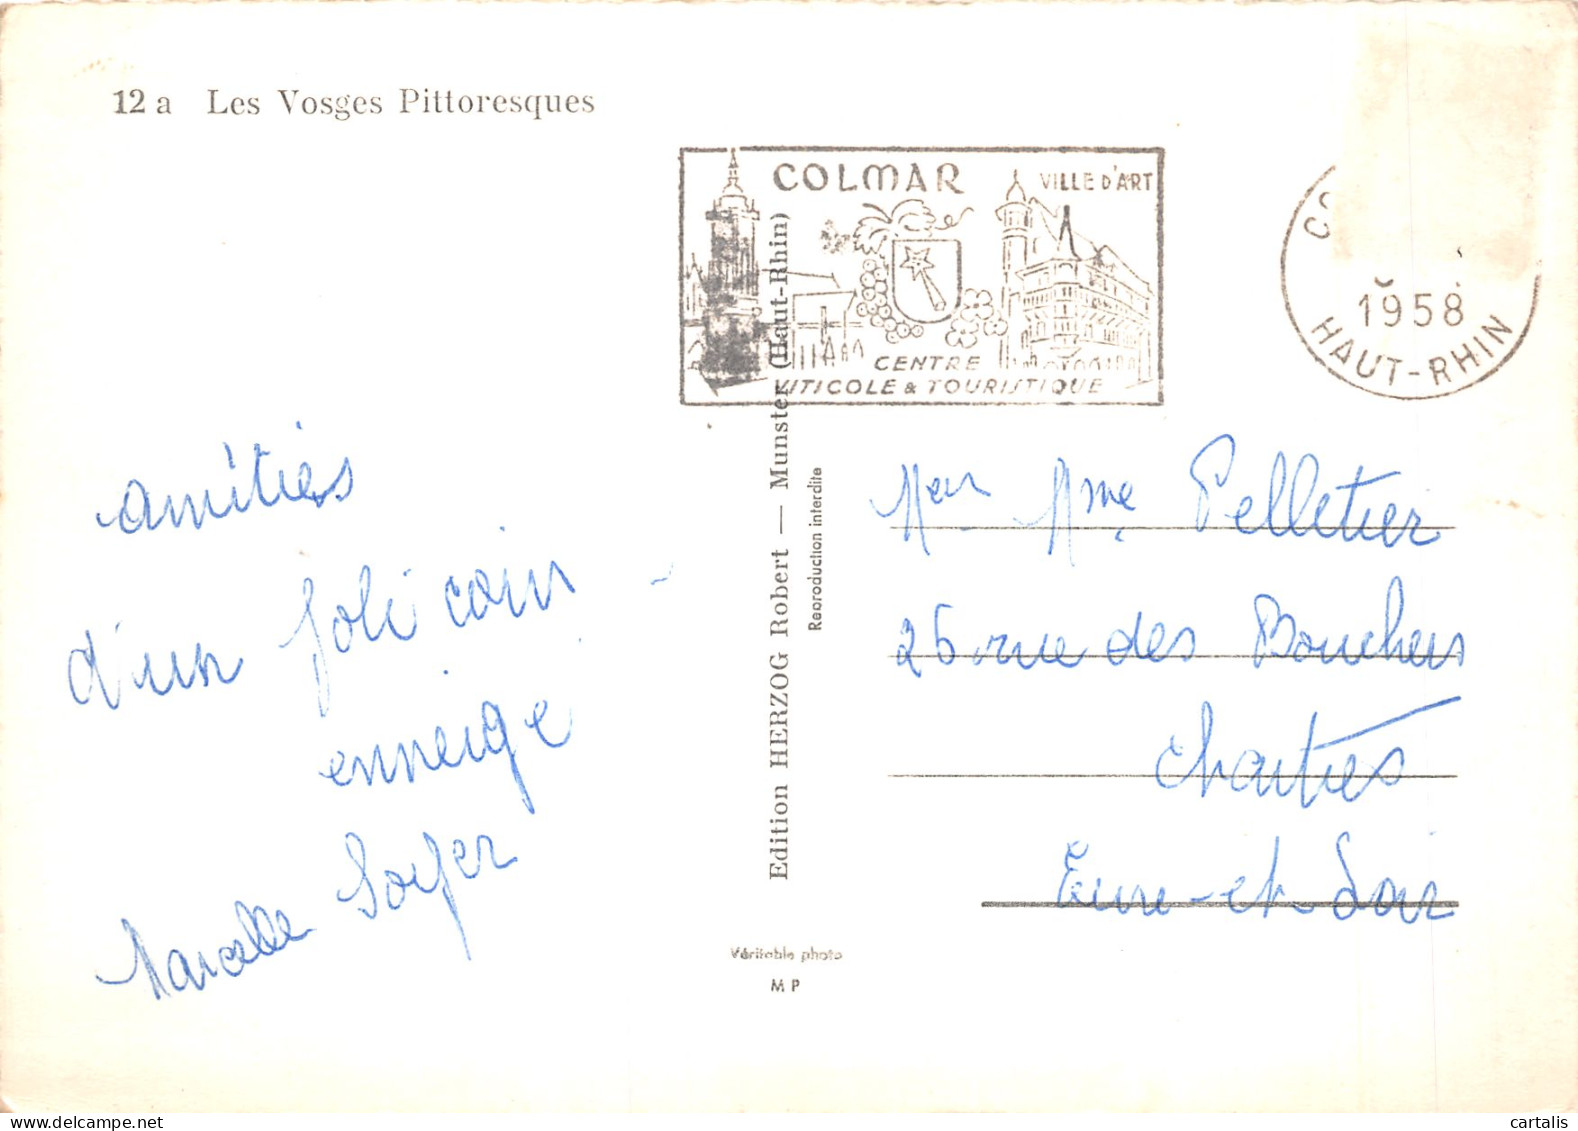 12 a Les Vosges Pittoresques
COLMAR
VILLE D'ART
CENTRE
VITICOLE & TOURISTIQUE
1958
HAUT-RHIN
amitiés
d'un joli coin
enneigé
Marcelle
Edition HERZOG Robert — Munster (Haut-Rhin)
Reproduction interdite
Véritable photo
M P
Mme Pelletier
rue des Bouchers
Chartres
Eure-et-Loir
cartalis